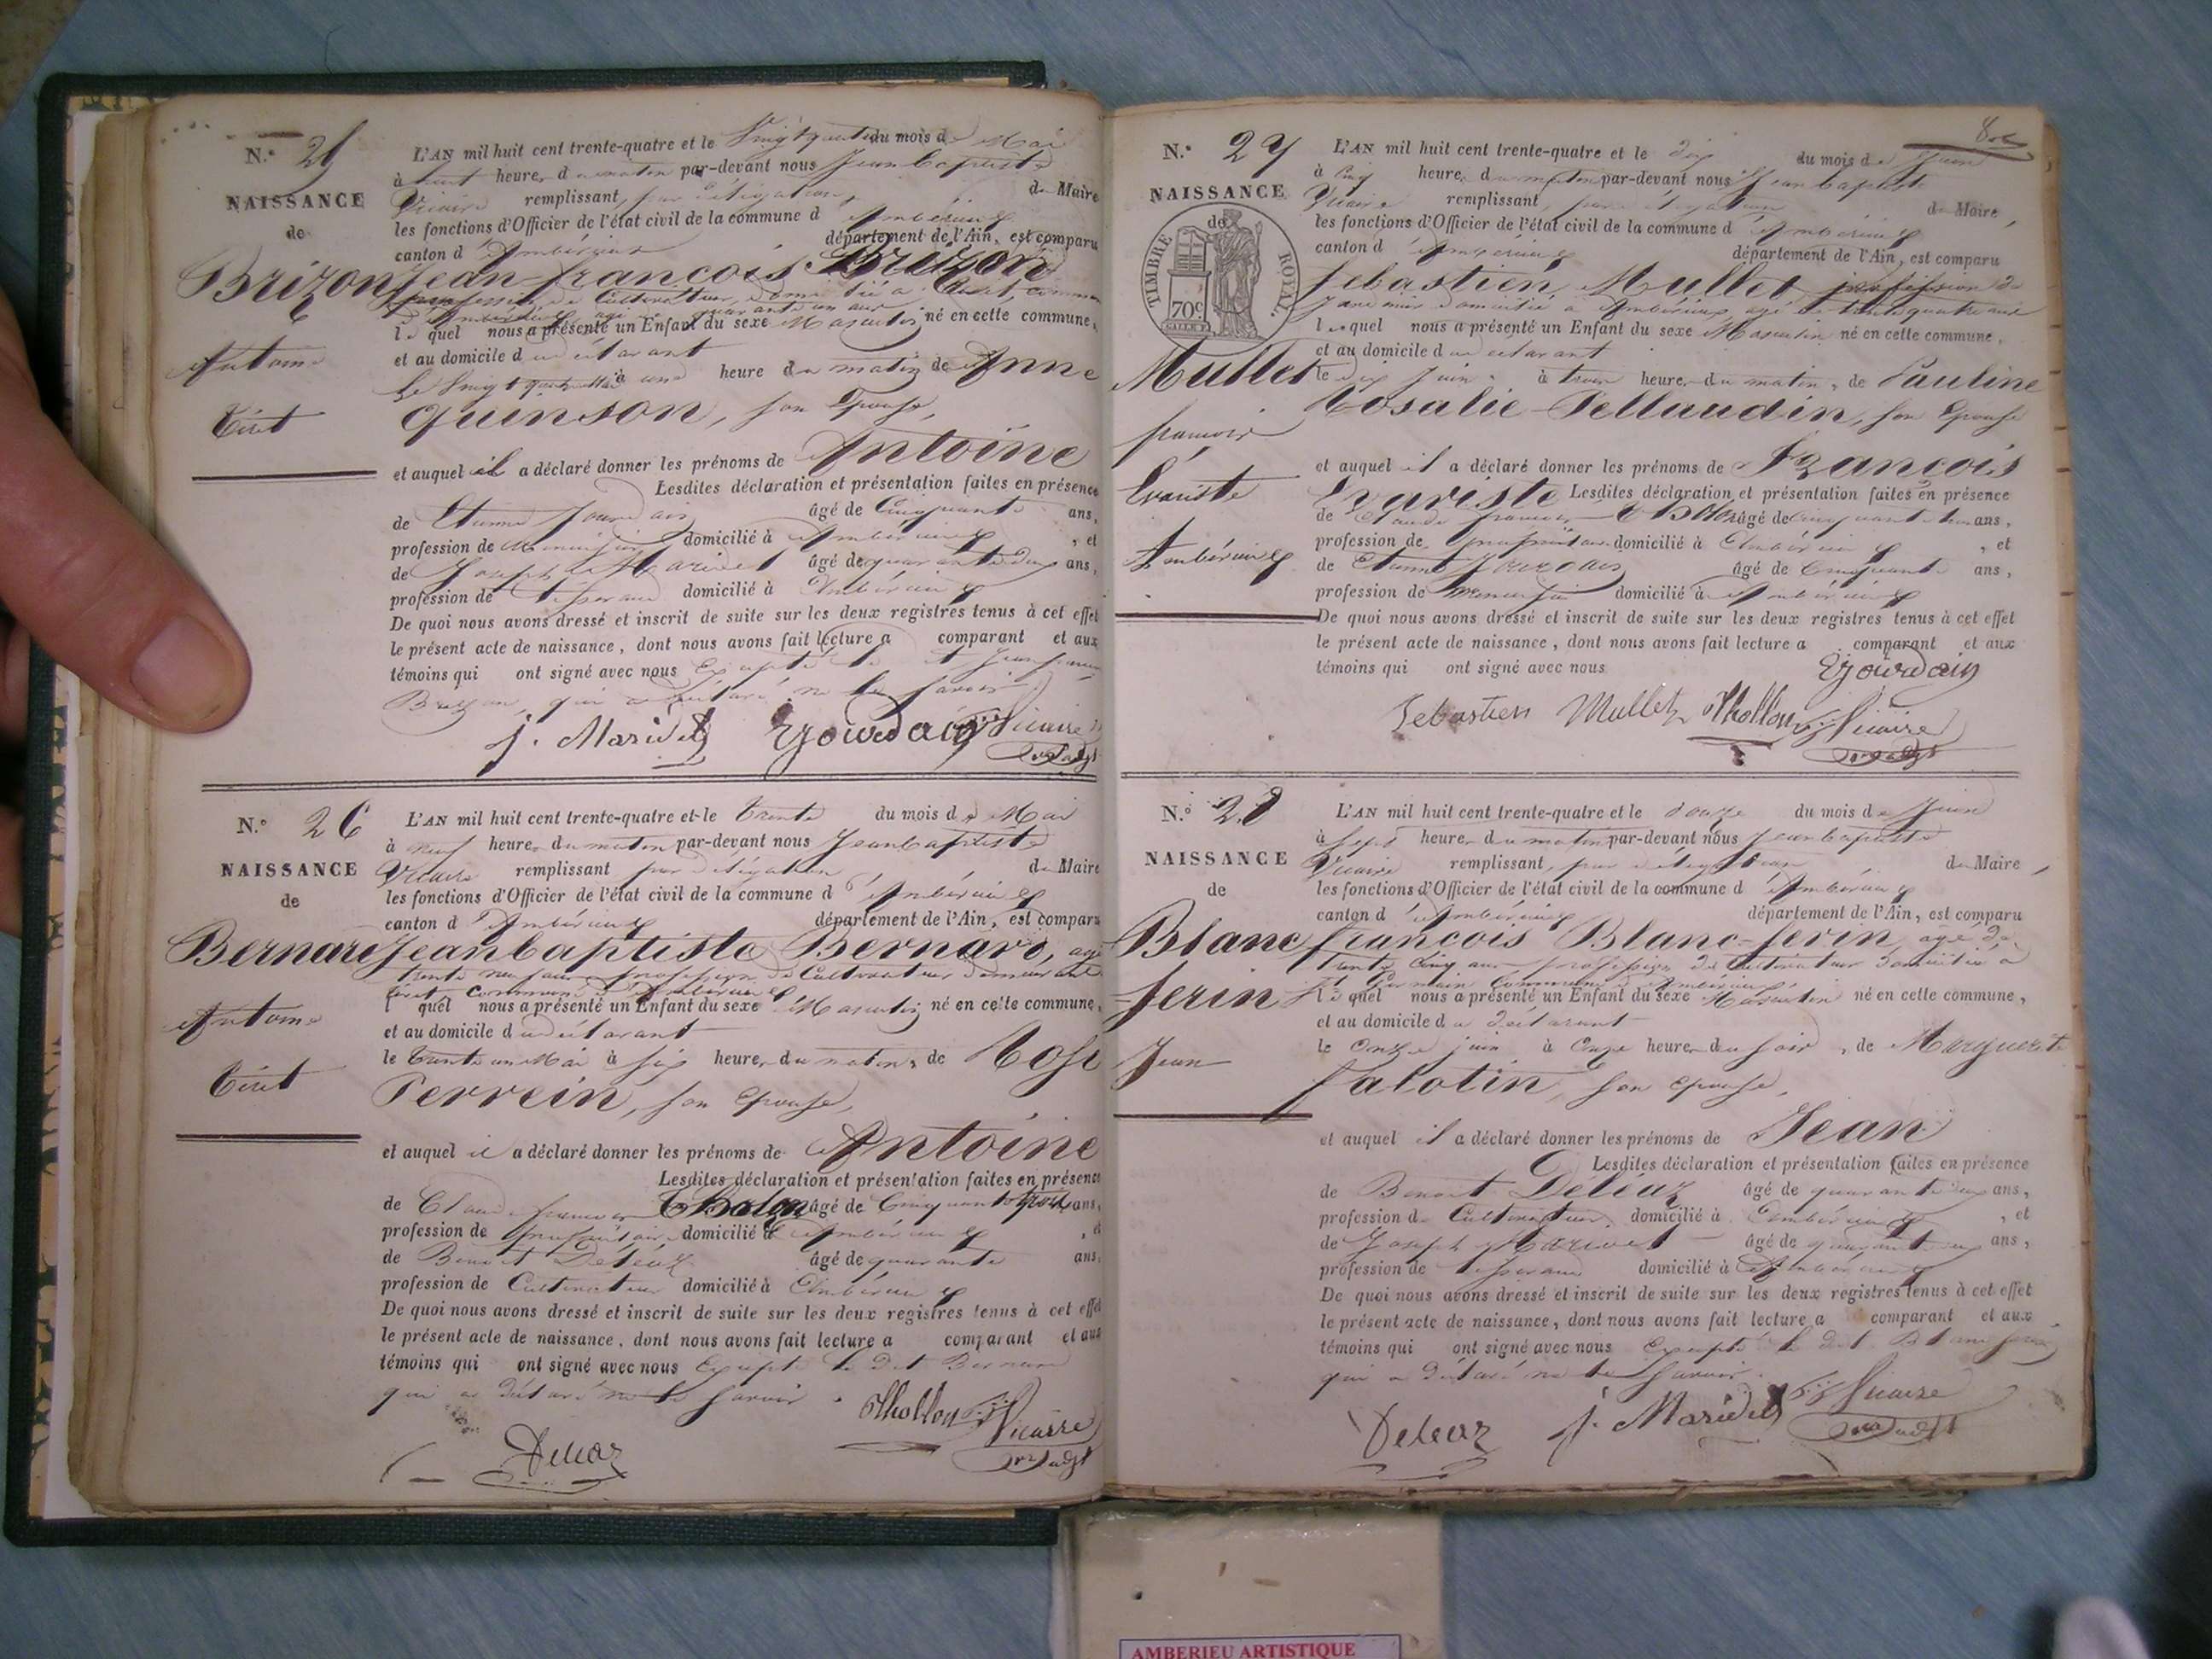 N.° 25
NAISSANCE
de
Brizon
Antoine
Tiret
L'AN mil huit cent trente-quatre et le Vingt quatre du mois de Mai
à huit heures du matin par-devant nous Jean baptiste
Vicaire remplissant, par délégation, du Maire
les fonctions d'Officier de l'état civil de la commune d'Ambérieux
canton d'Ambérieux département de l'Ain, est comparu
Jean-françois Brizon
profession de Cultivateur, domicilié à Tiret, commune
d'Ambérieux, âgé de quarante un ans
lequel nous a présenté un Enfant du sexe Masculin né en cette commune,
et au domicile du déclarant
le Vingt quatre Mai à une heure du matin de Anne
Quinson, son Epouse,
et auquel il a déclaré donner les prénoms de Antoine
Lesdites déclaration et présentation faites en présence
de Etienne Jourdain âgé de Cinquante ans,
profession de Menuisier domicilié à Ambérieux, et
de Joseph Maridet âgé de quarante deux ans,
profession de tisserand domicilié à Ambérieux
De quoi nous avons dressé et inscrit de suite sur les deux registres tenus à cet effet
le présent acte de naissance, dont nous avons fait lecture a comparant et aux
témoins qui ont signé avec nous Excepté le dit Jean françois
Brizon, qui a déclaré ne le savoir
J. Maridet EJourdain Vicaire
N.° 26
NAISSANCE
de
Bernard
Antoine
Tiret
L'AN mil huit cent trente-quatre et le trente du mois de Mai
à neuf heures du matin par-devant nous Jean baptiste
Vicaire remplissant par délégation du Maire
les fonctions d'Officier de l'état civil de la commune d'Ambérieux
canton d'Ambérieux département de l'Ain, est comparu
Jean baptiste Bernard, agé
trente neuf ans profession de Cultivateur demeurant à
tiret, commune d'Ambérieux
l quel nous a présenté un Enfant du sexe Masculin né en cette commune,
et au domicile du déclarant
le trente un Mai à six heures du matin, de Rose
Perrein, son Epouse,
et auquel il a déclaré donner les prénoms de Antoine
Lesdites déclaration et présentation faites en présence
de Claude françois Tholon âgé de Cinquante trois ans,
profession de propriétaire domicilié à Ambérieux, et
de Benoit Deléaz âgé de quarante ans,
profession de Cultivateur domicilié à Ambérieux
De quoi nous avons dressé et inscrit de suite sur les deux registres tenus à cet effet
le présent acte de naissance, dont nous avons fait lecture a comparant et aux
témoins qui ont signé avec nous Excepté le dit Bernard
qui a déclaré ne le savoir.
Thollon Vicaire
Deleaz
8
N.° 27
NAISSANCE
de
TIMBRE ROYAL
70c
Mullet
françois
Evariste
Ambérieux
L'AN mil huit cent trente-quatre et le dix du mois de Juin
à cinq heures du matin par-devant nous Jean baptiste
Vicaire remplissant, par délégation du Maire,
les fonctions d'Officier de l'état civil de la commune d'Ambérieux
canton d'Ambérieux département de l'Ain, est comparu
Sebastien Mullet profession de
domicilié à Ambérieux, agé de trente quatre ans
lequel nous a présenté un Enfant du sexe Masculin né en cette commune,
et au domicile du déclarant
le dix Juin à trois heures du matin, de Pauline
Rosalie Pellaudin, son Epouse
et auquel il a déclaré donner les prénoms de François
Evariste Lesdites déclaration et présentation faites en présence
de Claude françois Tholon âgé de cinquante trois ans,
profession de propriétaire domicilié à Ambérieux, et
de Etienne Jourdain âgé de Cinquante ans,
profession de menuisier domicilié à Ambérieux
De quoi nous avons dressé et inscrit de suite sur les deux registres tenus à cet effet
le présent acte de naissance, dont nous avons fait lecture a comparant et aux
témoins qui ont signé avec nous EJourdain
Sebastien Mullet Thollon Vicaire
N.° 28
NAISSANCE
de
Blanc
ferin
Jean
L'AN mil huit cent trente-quatre et le douze du mois de Juin
à sept heures du matin par-devant nous Jean baptiste
Vicaire remplissant, par délégation du Maire,
les fonctions d'Officier de l'état civil de la commune d'Ambérieux
canton d'Ambérieux département de l'Ain, est comparu
françois Blanc-ferin, agé de
trente cinq ans profession de Cultivateur domicilié à
St Germain Commune d'Ambérieux
lequel nous a présenté un Enfant du sexe Masculin né en cette commune,
et au domicile du déclarant
le onze juin à onze heures du soir, de Marguerite
falotin, son Epouse,
et auquel il a déclaré donner les prénoms de Jean
Lesdites déclaration et présentation faites en présence
de Benoit Déléaz âgé de quarante deux ans,
profession de Cultivateur domicilié à Ambérieux, et
de Joseph Maridet âgé de quarante deux ans,
profession de tisserand domicilié à Ambérieux
De quoi nous avons dressé et inscrit de suite sur les deux registres tenus à cet effet
le présent acte de naissance, dont nous avons fait lecture a comparant et aux
témoins qui ont signé avec nous Excepté le dit Blanc ferin
qui a déclaré ne le savoir.
Deleaz J. Maridet Vicaire
AMBERIEU ARTISTIQUE